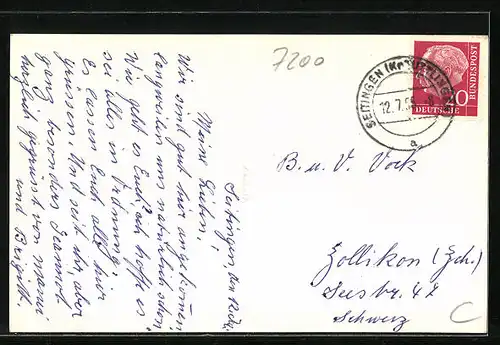 7200
SEITINGEN (Kr. TUTTLINGEN)
12.7.55
a
DEUTSCHE BUNDESPOST
Seitingen, den 12.7.
Meine Lieben!
Wir sind gut hier angekommen,
langweilen uns natürlich schon.
Wie geht es Euch, ich hoffe es
sei alles in Ordnung.
Es lassen Euch alle hier
grüssen. Und seid Ihr aber
ganz besonders
herzlich gegrüsst von Mami
und Brigitt.
B. u. V. Vock
Zollikon (Zch.)
Seestr. 47
Schweiz
C